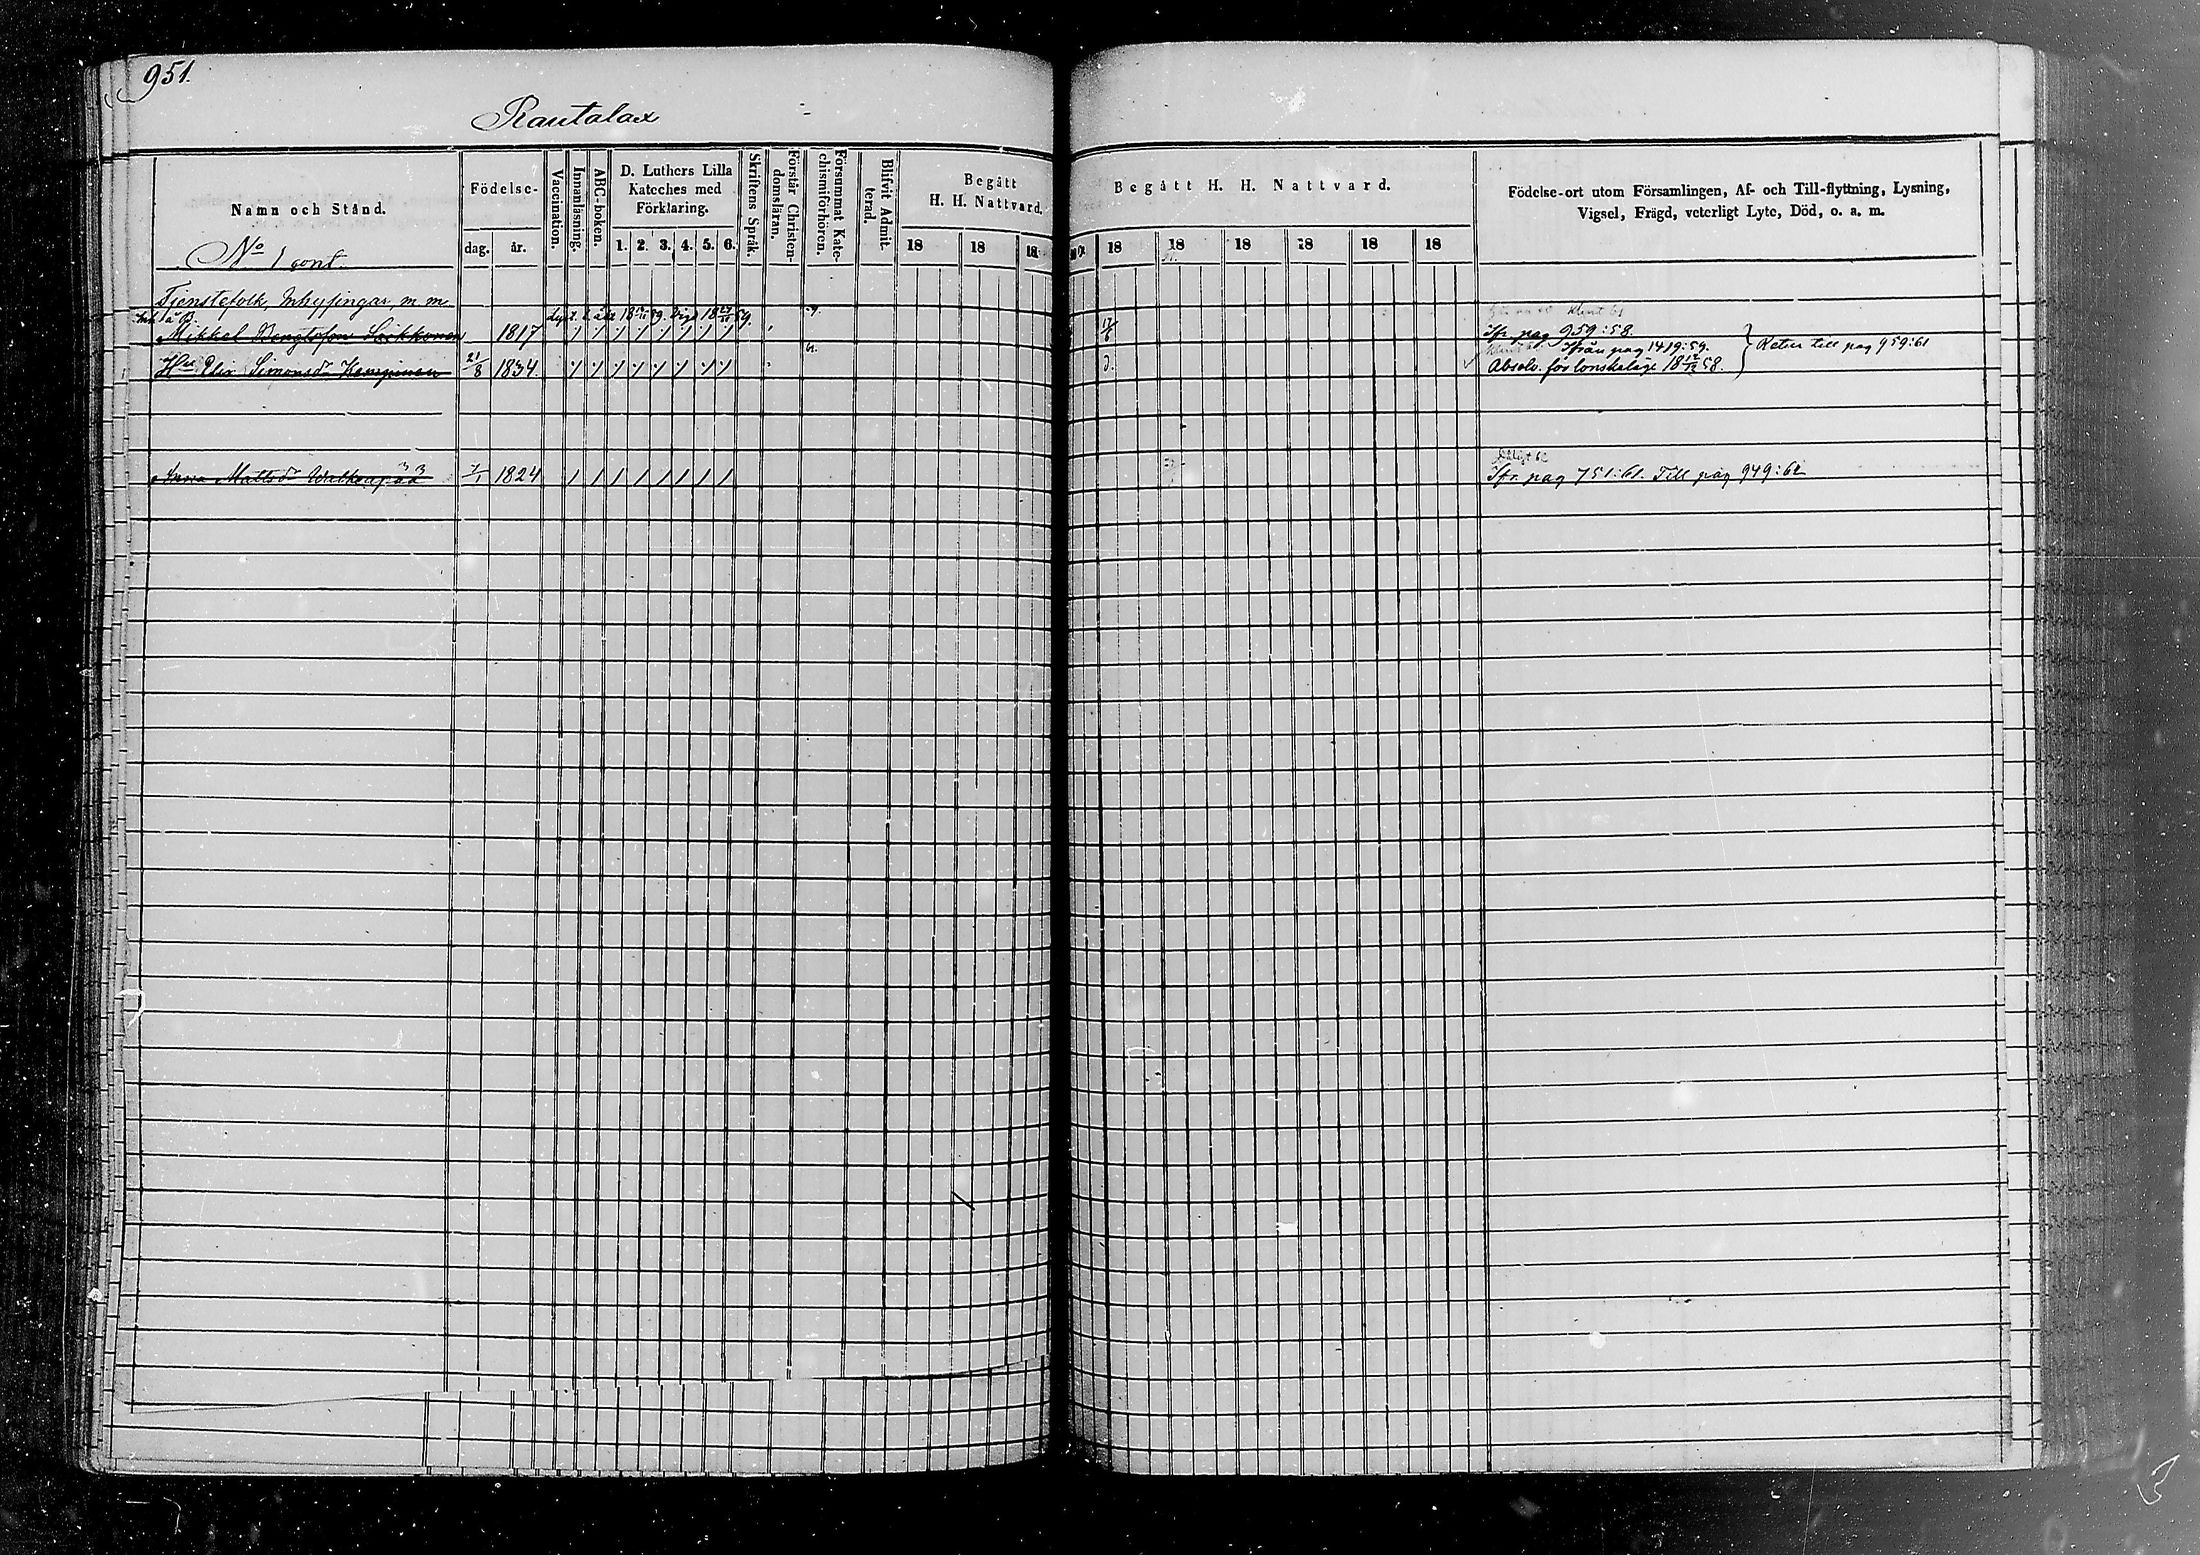 951.
Rautalax
Namn och Stånd.
Födelse-
dag. år.
Vaccination.
Innanläsning.
ABC-boken.
D. Luthers Lilla
Kateches med
Förklaring.
1. 2. 3. 4. 5. 6.
Skriftens Språk.
Förstår Christen-
domsläran.
Försummat Kate-
chismiförhören.
Blifvit Admit-
terad.
Begått
H. H. Nattvard.
18 18 18
Begått H. H. Nattvard.
18 18 18 18 18 18
Födelse-ort utom Församlingen, Af- och Till-flyttning, Lysning,
Vigsel, Frägd, veterligt Lyte, Död, o. a. m.
No 1 cont.
Tjenstefolk, Inhysingar, m m
Mikkel Bengtsson 1817 Ifr. pag 959:58.
Ifrån pag 1419:59. Retur till pag 959:61
Simonsdr 21/8 1834 Absolv. för lönskaläge 18 12/12 58.
Anna Mattsdr 1824 Ifr. pag 751:61. Till pag 949:62